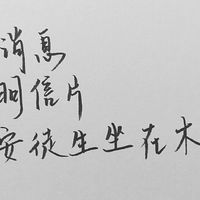 消息
明信片
安徒生坐在木